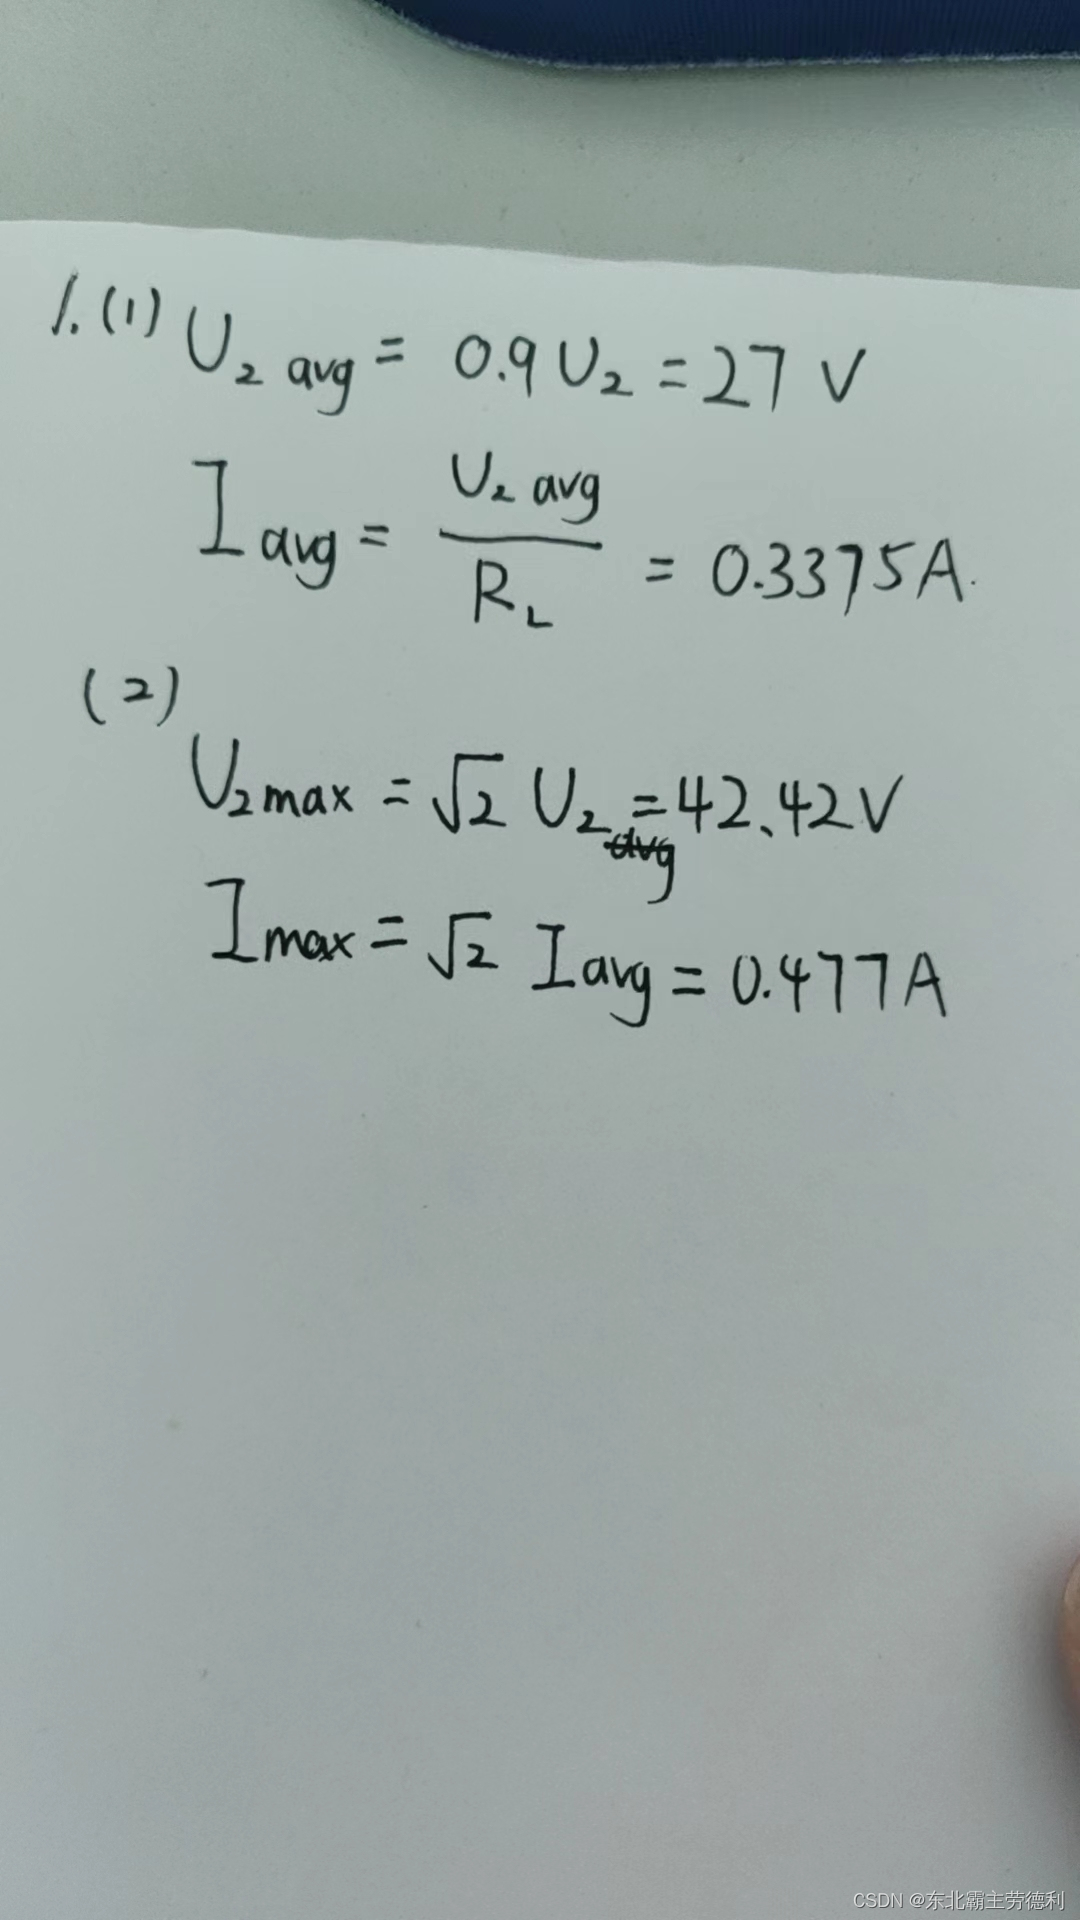 1.(1) U₂ avg = 0.9 U₂ = 27 V
I avg = U₂ avg / R_L = 0.3375A.
(2)
U₂max = √2 U₂ = 42.42V
avg
Imax = √2 Iavg = 0.477A
CSDN @东北霸主劳德利